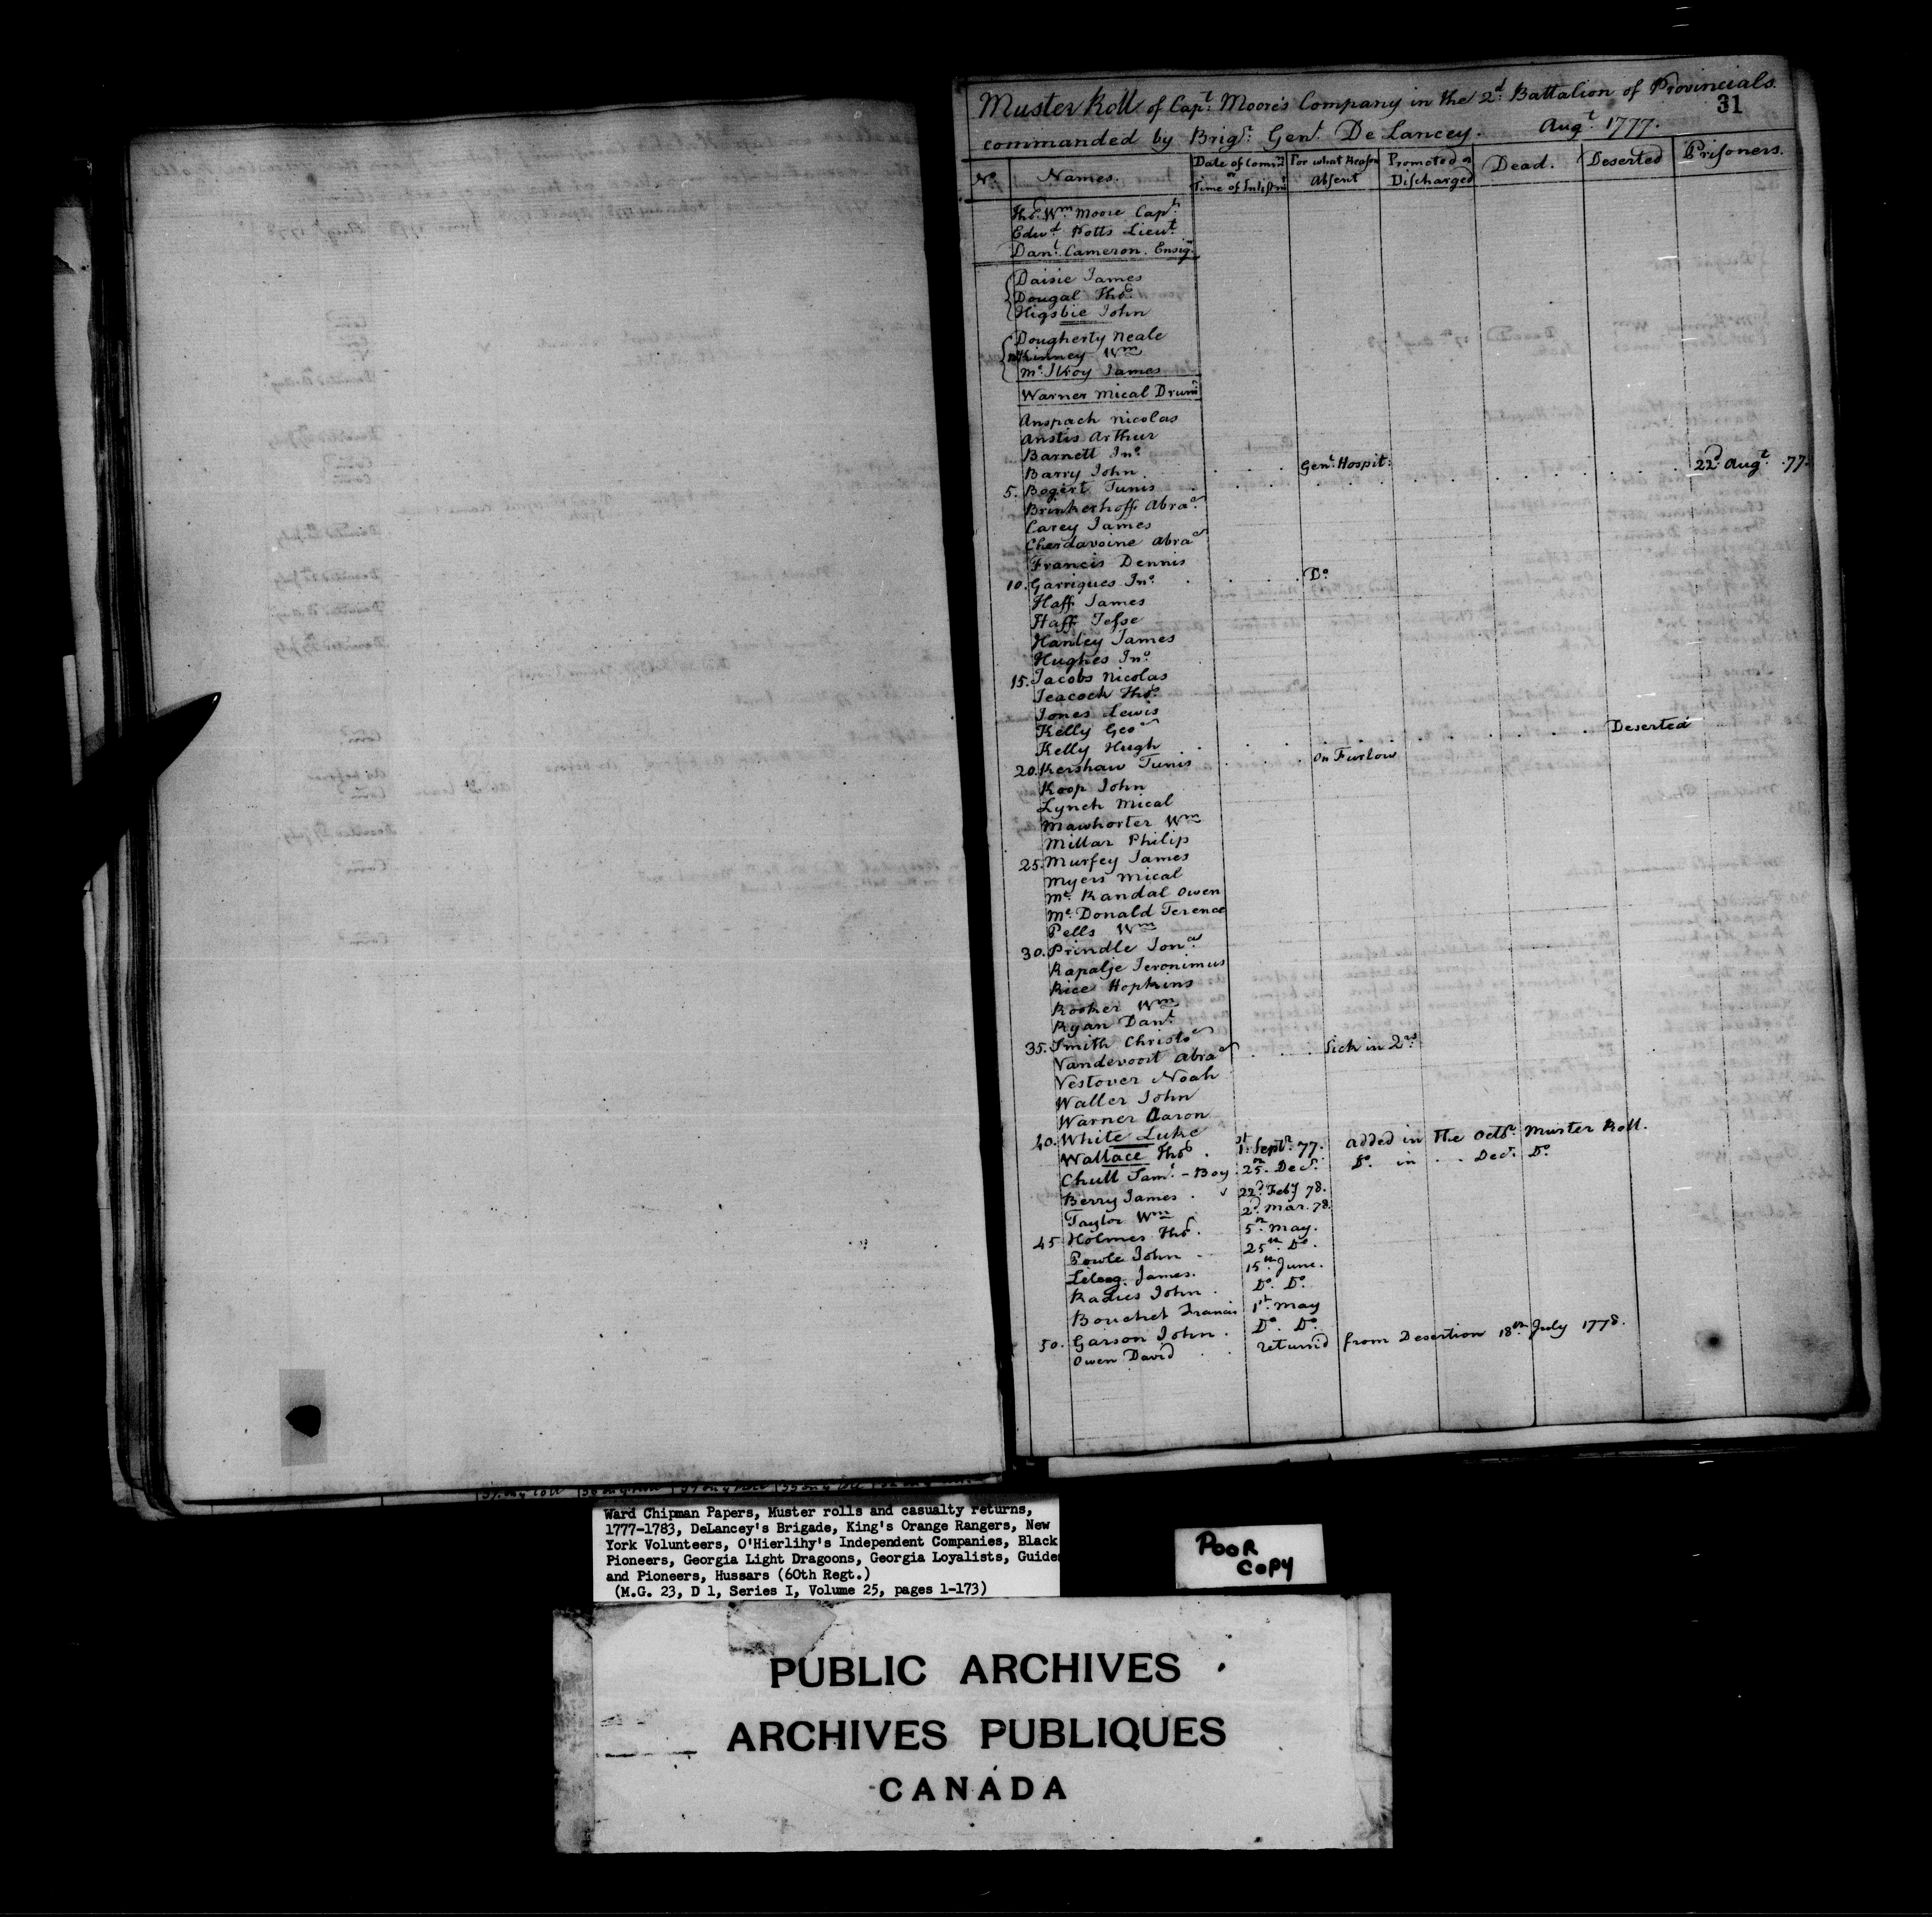 31
Muster Roll of Capt. Moore's Company in the 2d. Battalion of Provincials.
commanded by Brigr. Genl. De Lancey. Augt. 1777.
No. Names. Date of Comn. or Time of Inlistmt For what Reason Absent Promoted or Discharged Dead. Deserted Prisoners.
Thos. Wm. Moore Capt.
Edwd. Potts Lieut.
Danl. Cameron. Ensign
Daisie James
Dougal Thos.
Higsbie John
Dougherty Neale
McKinney Wm
Mc.Ilroy James
Warner Mical Drumr
Anspach Nicolas
Anstis Arthur
Barnett Jno.
Barry John . . . Genl. Hospit:
5. Bogert Tunis . . . 22d. Augt. 77.
Brinkerhoff Abram
Carey James
Cherdavoine Abram
Francis Dennis
10. Garrigues Jno. . . . Do.
Haff James
Haff Jesse
Hanley James
Hughes Jno.
15. Jacobs Nicolas
Jeacock Thos.
Jones Lewis
Kelly Geo
Kelly Hugh . . . Deserted
20. Kershaw Tunis . . . On Furlow
Koop John
Lynch Mical
Mawhorter Wm
Millar Philip
25. Murfey James
Myers Mical
Mc. Randal Owen
Mc. Donald Terence
Pells Wm
30. Prindle Jona.
Rapalje Jeronimus
Rice Hopkins
Rooker Wm
Ryan Danl.
35. Smith Christo
Vandevoort Abram . . . Sick in 2rs.
Vestover Noah
Waller John
Warner Aaron
40. White Luke
Wallace Thos. . 1st. Septr. 77. added in the Octr. Muster Roll.
Chull Saml. - Boy 25th. Decr. Do. in . . Decr. Do.
Berry James . 22d. Feby 78.
Taylor Wm 2d. Mar. 78.
45 Holmes Thos. 5th. May.
Powle John 25th. Do.
Lelong James. 15th. June.
Radues John . Do. Do.
Bouchet Francis 1st. May
50. Garson John . Do. Do.
Owen David . . returnd from Desertion 18th. July 1778.
Ward Chipman Papers, Muster rolls and casualty returns,
1777-1783, DeLancey's Brigade, King's Orange Rangers, New
York Volunteers, O'Hierlihy's Independent Companies, Black
Pioneers, Georgia Light Dragoons, Georgia Loyalists, Guides
and Pioneers, Hussars (60th Regt.)
(M.G. 23, D 1, Series I, Volume 25, pages 1-173)
POOR
COPY
PUBLIC ARCHIVES
ARCHIVES PUBLIQUES
CANADA